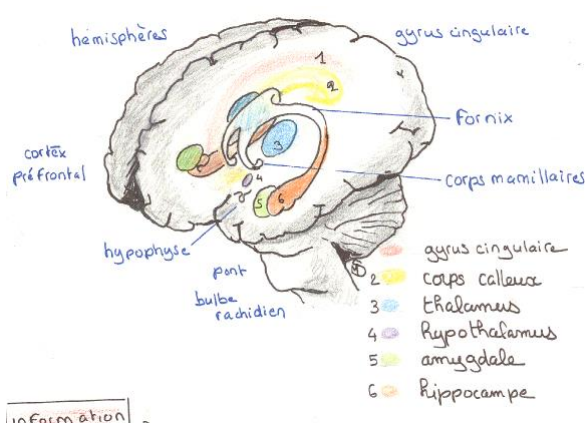 hémisphères
gyrus cingulaire
1
2
fornix
3
cortex
préfrontal
4
corps mamillaires
5
6
hypophyse
pont
bulbe
rachidien
gyrus cingulaire
2 corps calleux
3 thalamus
4 hypothalamus
5 amygdale
6 hippocampe
information